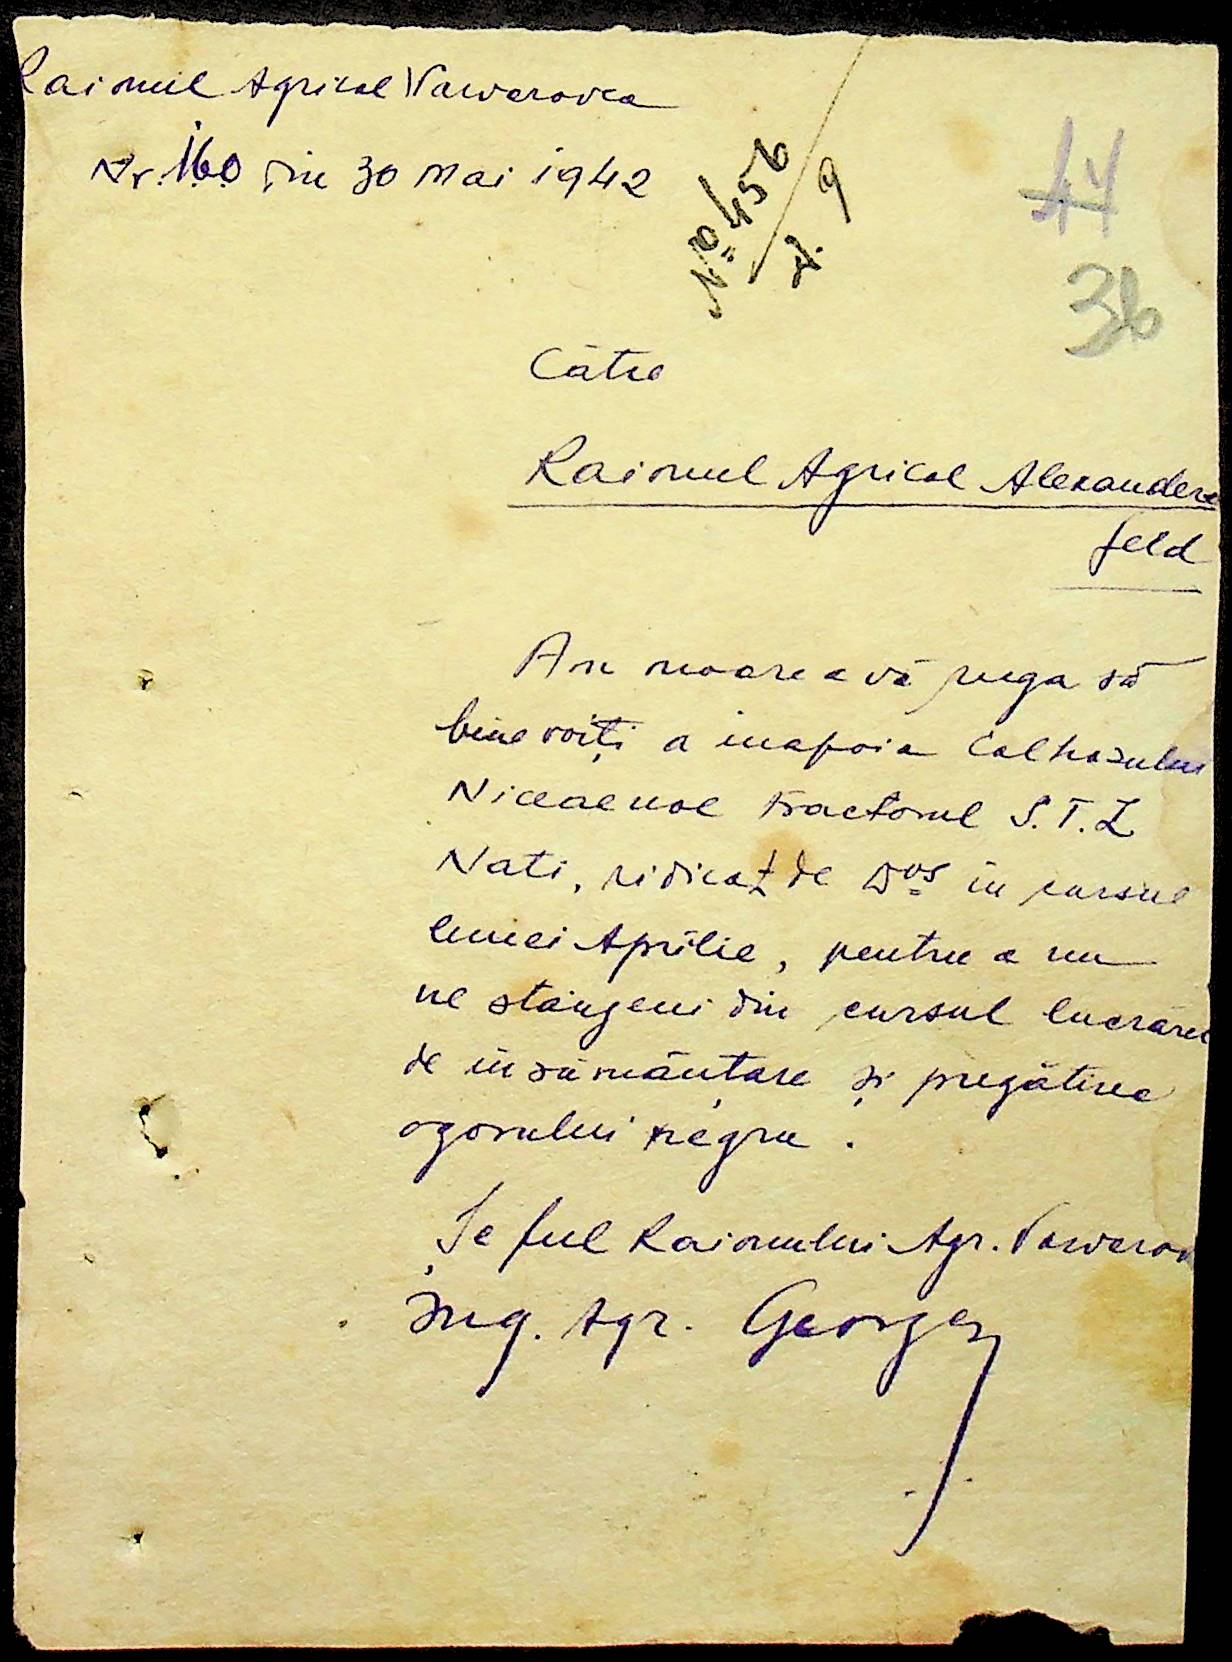 Raionul Agricol Vawarovca
Nr. 160 din 30 Mai 1942
No 456
9
44
36
Către
Raionul Agricol Alexander
feld
Am noarea vă ruga să
bine voiți a inapoia Colhozului
tractorul S.T.Z
Nati, ridicat de Dvs in cursul
lunei Aprilie, pentru a nu
ne stângeni din cursul lucrărei
de însămânțare și pregătirea
ogorului negru.
Șeful Raionului Agr. Vawarov
Ing. Agr. Georgen